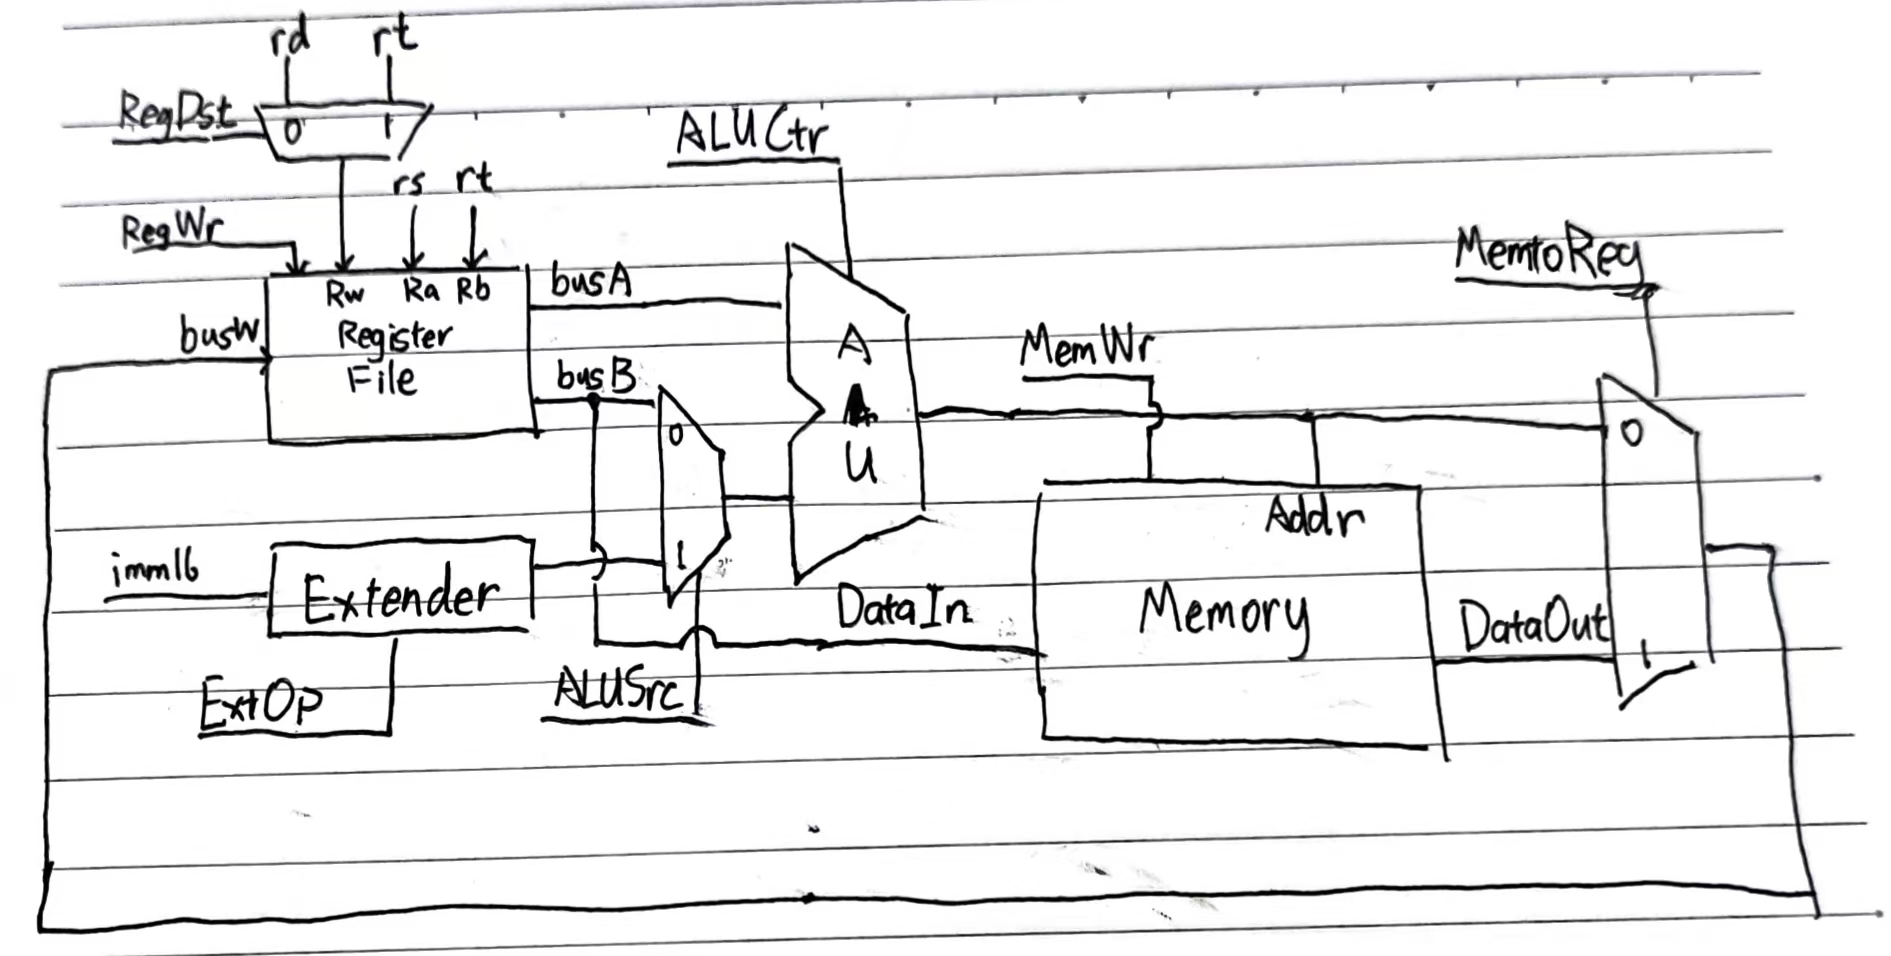 rd rt
RegDst
0 1
ALUCtr
rs rt
RegWr
MemtoReg
Rw Ra Rb
busA
busW
Register
File
A
U
MemWr
busB
0
0
Addr
imm16
Extender
1
DataIn
Memory
DataOut
1
ExtOp
ALUSrc